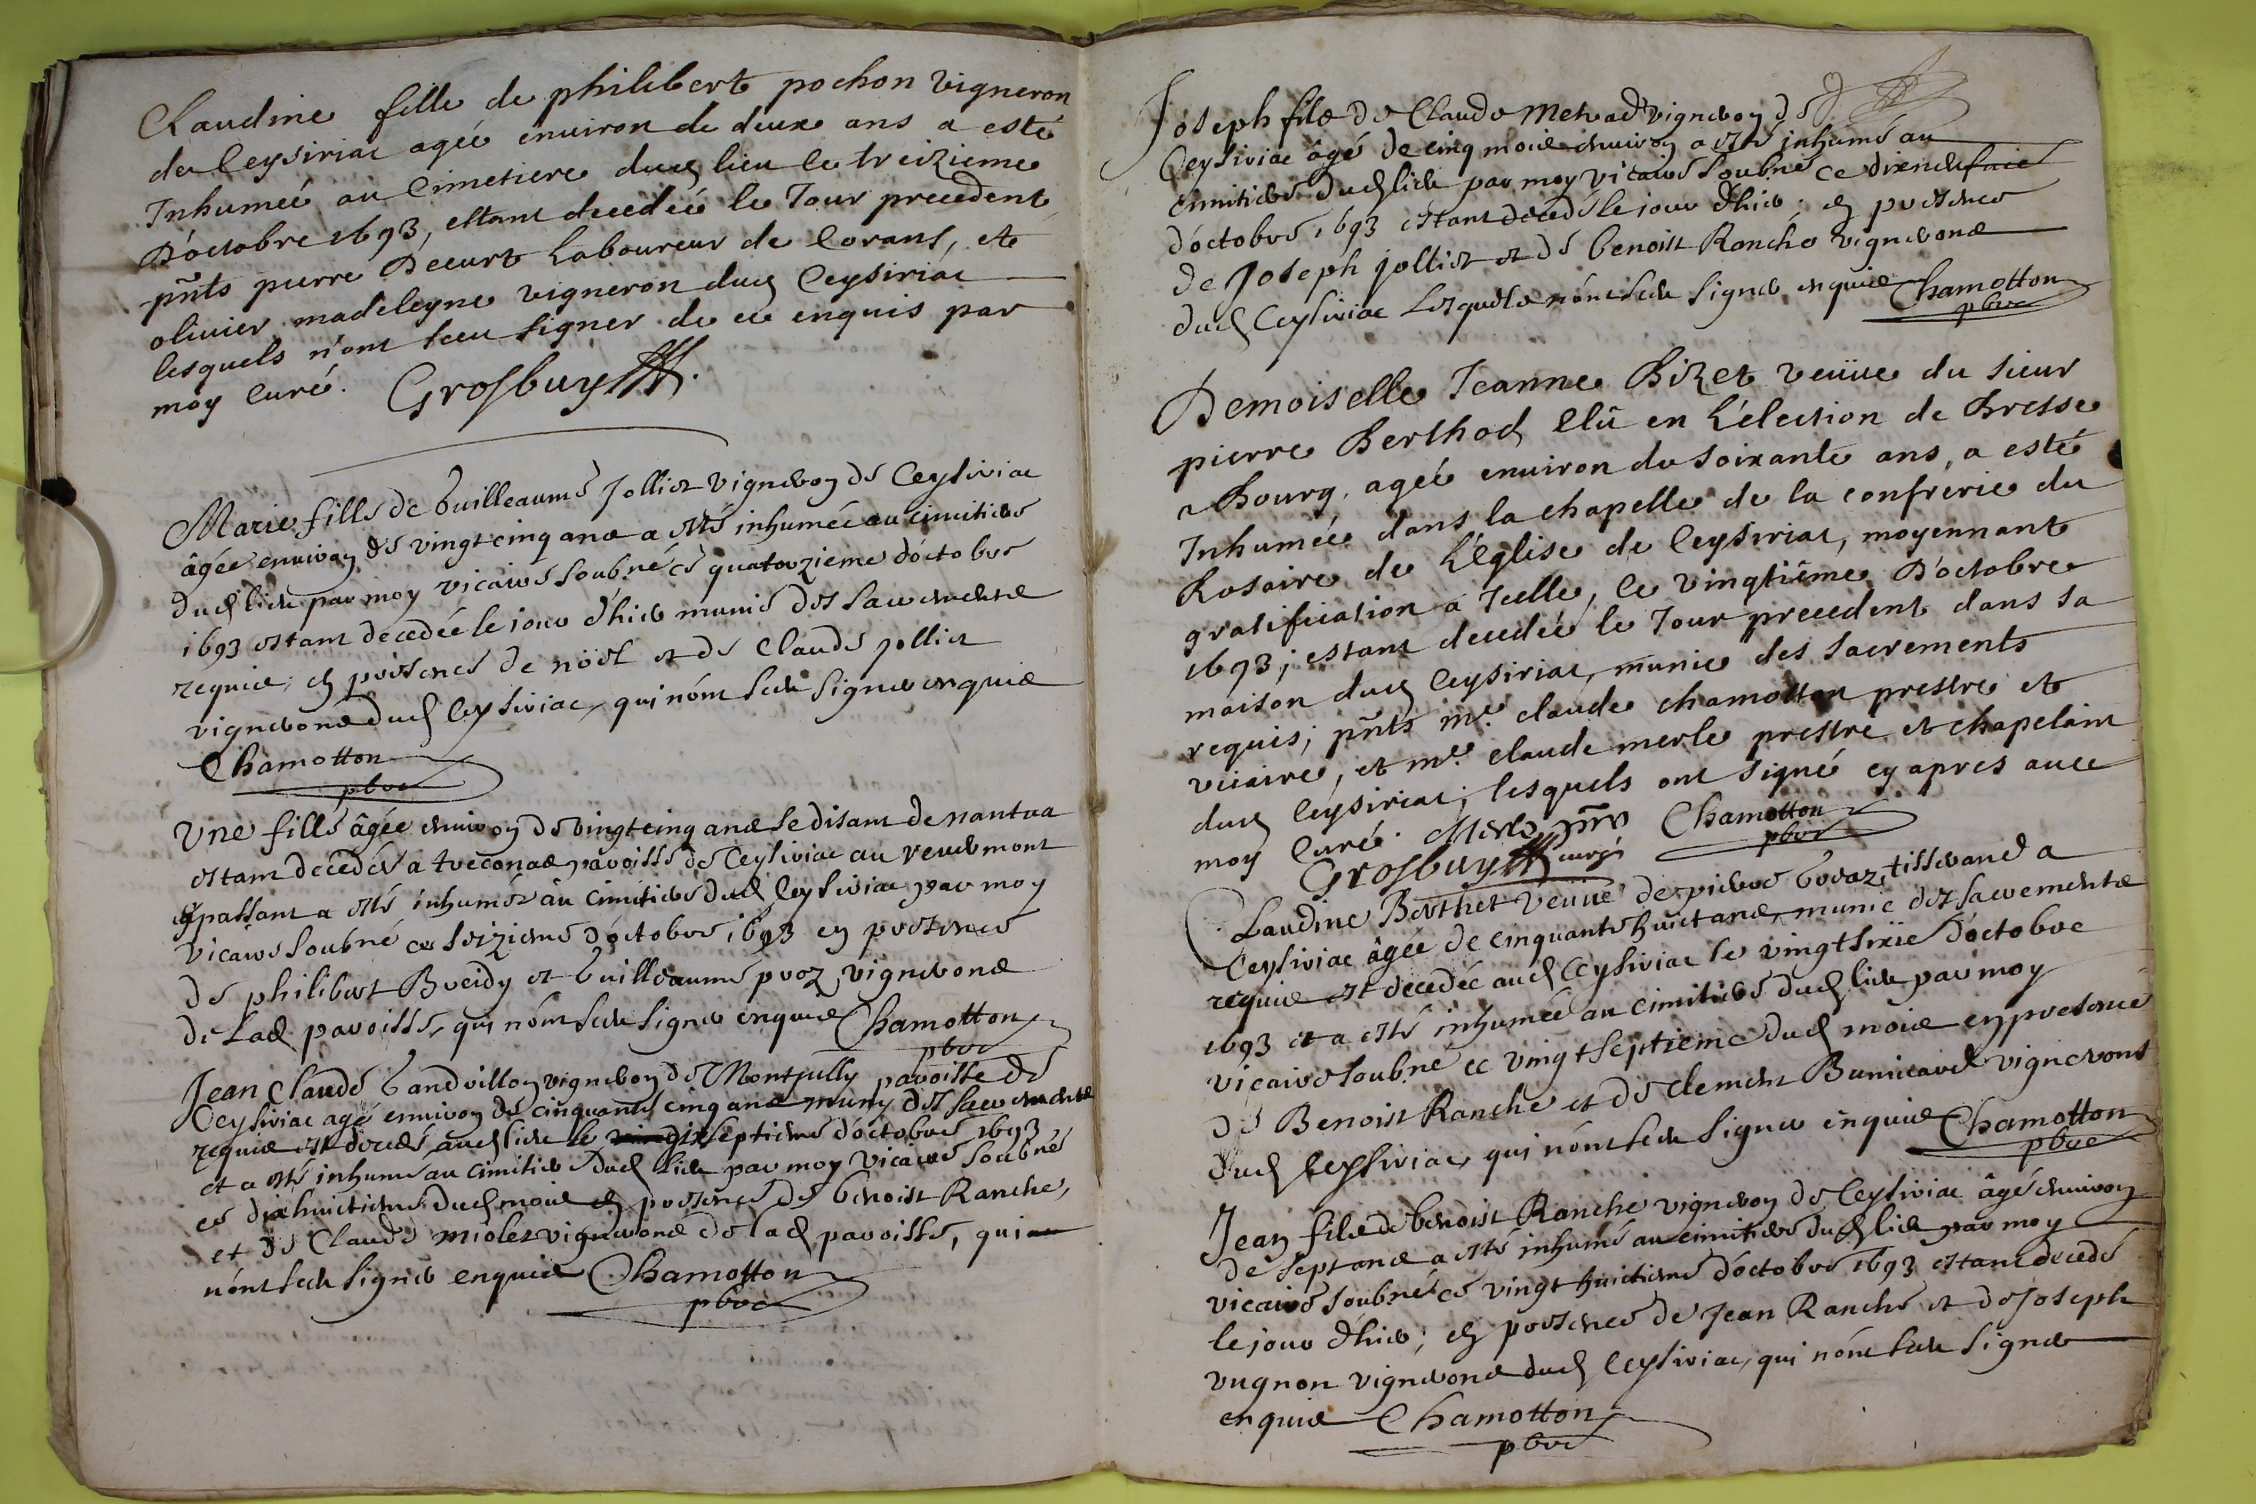 Claudine fille de philibert pochon vigneron
de Ceysiriac agée environ de deux ans a esté
Inhumée au Cimetiere dud lieu le treizieme
D'octobre 1693, estant decedée le Jour precedent,
pñts pierre Decurt Laboureur de Corans, et
olivier madeleyne vigneron dud Ceysiriac
lesquels n'ont sceu signer de ce enquis par
moy Curé. Grosbuy
Marie fille de Guilleaume Jolliet vigneron de Ceysiriac
âgée environ de vingt cinq ans a esté inhumée au cimitiere
dud lieu par moy vicaire soubné ce quatorzieme d'octobre
1693 estant decedée le jour d'hier munie des sacrements
requis; en presence de nöel et de Claude jolliet
vignerons dud Ceysiriac, qui n'ont sceu signer enquis
Chamotton
pbre
Une fille âgée environ de vingt cinq ans se disant de nantua
estant decedée a treconas paroisse de Ceysiriac au revermont
en passant a esté inhumée au cimitiere dud Ceysiriac par moy
vicaire soubné ce seizieme d'octobre 1693 en presence
de philibert Breidy et Guilleaume proz vignerons
de Lad paroisse, qui n'ont sceu signer enquis Chamotton
pbre
Jean Claude Gandvillon vigneron de Montjully paroisse de
Ceysiriac agé environ de cinquante cinq ans muny des sacrements
requis est decedé aud lieu le dixseptieme d'octobre 1693
et a esté inhumé au cimitiere dud lieu par moy vicaire soubné
ce dixhuictieme dud mois en presence de benoist Ranche,
et de Claude miolet vignerons de lad paroisse, qui
n'ont sceu signer enquis Chamotton
pbre
Joseph fils de Claude Metrad vigneron de
Ceysiriac âgé de cinq mois environ a esté inhumé au
cimitiere dud lieu par moy vicaire soubné ce dixneufvie
d'octobre 1693 estant decedé le jour d'hier; en presence
de Joseph jolliet et de benoist Ranche vignerons
dud Ceysiriac Lesquels n'ont sceu signer enquis Chamotton
pbre
Demoiselle Jeanne Bizet veüve du sieur
pierre Berthod Elû en L'élection de Bresse
a Bourg, agée environ du soixante ans, a esté
Inhumée dans la chapelle de la confrerie du
Rosaire de L'Eglise de Ceysiriac, moyennant
gratification a Icelle, ce vingtième D'octobre
1693; estant decedée le Jour precedent dans sa
maison dud Ceysiriac, munie des sacrements
requis; pñts mre claude chamotton prestre et
vicaire, et mre claude merle prestre et chapelain
dud Céysiriac; lesquels ont signé cy apres avec
moy Curé. Merle pñre Chamotton
Grosbuy curé pbre
Claudine Berthet veuve de pierre Goraz tisserand a
Ceysiriac âgée de cinquante huict ans, munie des sacrements
requis est decedée aud Ceysiriac le vingt sixie d'octobre
1693 et a esté inhumée au cimitiere dud lieu par moy
vicaire soubné ce vingt septieme dud mois en presence
de Benoist Ranche et de clement Bunicard vignerons
dud Ceysiriac, qui n'ont sceu signer enquis Chamotton
pbre
Jean fils de benoist Ranche vigneron de Ceysiriac âgé environ
de sept ans a esté inhumé au cimitiere dud lieu par moy
vicaire soubné ce vingt huictieme d'octobre 1693 estant decedé
le jour d'hier; en presence de Jean Ranche et de Joseph
vugnon vignerons dud Ceysiriac, qui n'ont sceu signer
enquis Chamotton
pbre